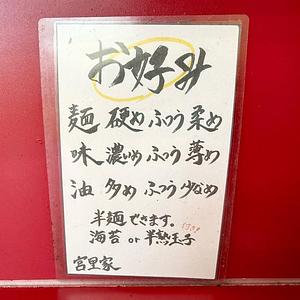 お好み
麺 硬め ふつう 柔め
味 濃いめ ふつう 薄め
油 多め ふつう 少なめ
半麺できます。
海苔 or 半熟玉子
宮里家